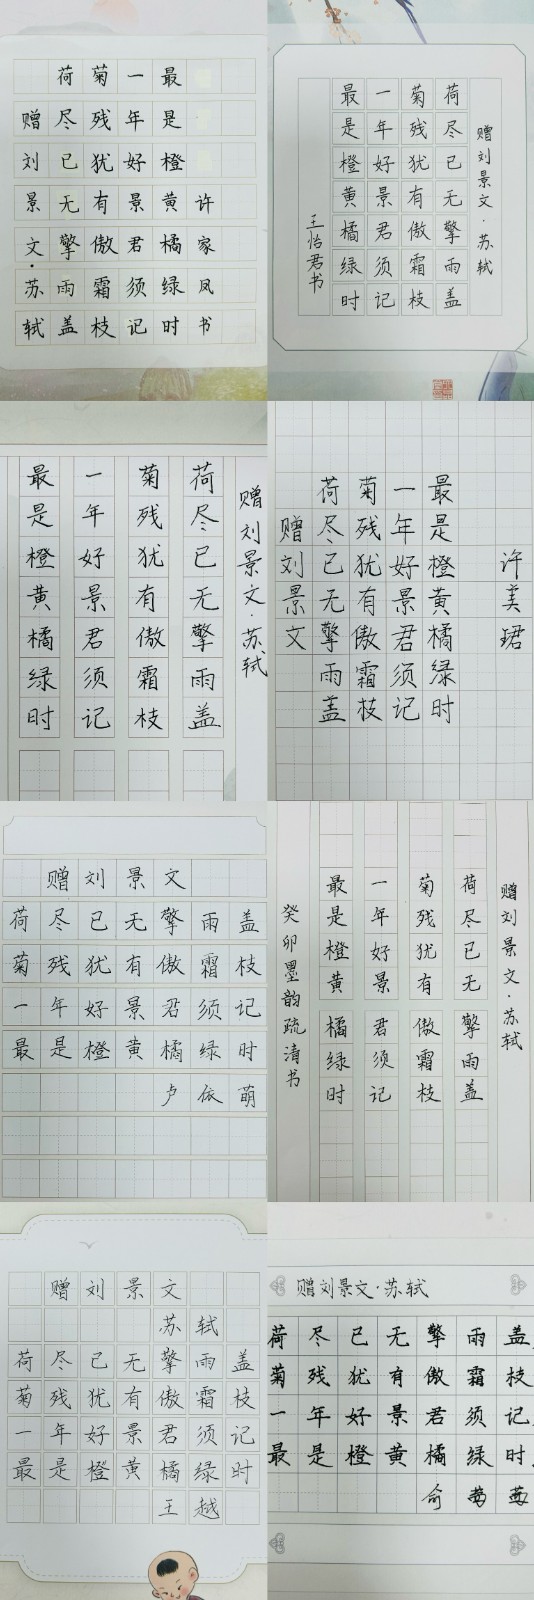 赠刘景文·苏轼
荷尽已无擎雨盖
菊残犹有傲霜枝
一年好景君须记
最是橙黄橘绿时
许家凤书
赠刘景文·苏轼
荷尽已无擎雨盖
菊残犹有傲霜枝
一年好景君须记
最是橙黄橘绿时
王怡君书
赠刘景文·苏轼
荷尽已无擎雨盖
菊残犹有傲霜枝
一年好景君须记
最是橙黄橘绿时
赠刘景文
荷尽已无擎雨盖
菊残犹有傲霜枝
一年好景君须记
最是橙黄橘绿时
许美珺
赠刘景文
荷尽已无擎雨盖
菊残犹有傲霜枝
一年好景君须记
最是橙黄橘绿时
卢依萌
赠刘景文·苏轼
荷尽已无擎雨盖
菊残犹有傲霜枝
一年好景君须记
最是橙黄橘绿时
癸卯墨韵疏清书
赠刘景文
苏轼
荷尽已无擎雨盖
菊残犹有傲霜枝
一年好景君须记
最是橙黄橘绿时
王越
赠刘景文·苏轼
荷尽已无擎雨盖
菊残犹有傲霜枝
一年好景君须记
最是橙黄橘绿时
俞